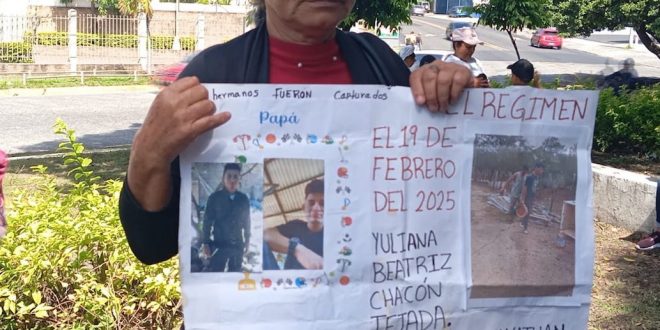 hermanos FUERON Capturados
EL REGIMEN
Papá
EL 19 DE
FEBRERO
DEL 2025
YULIANA
BEATRIZ
CHACÓN
TEJADA.